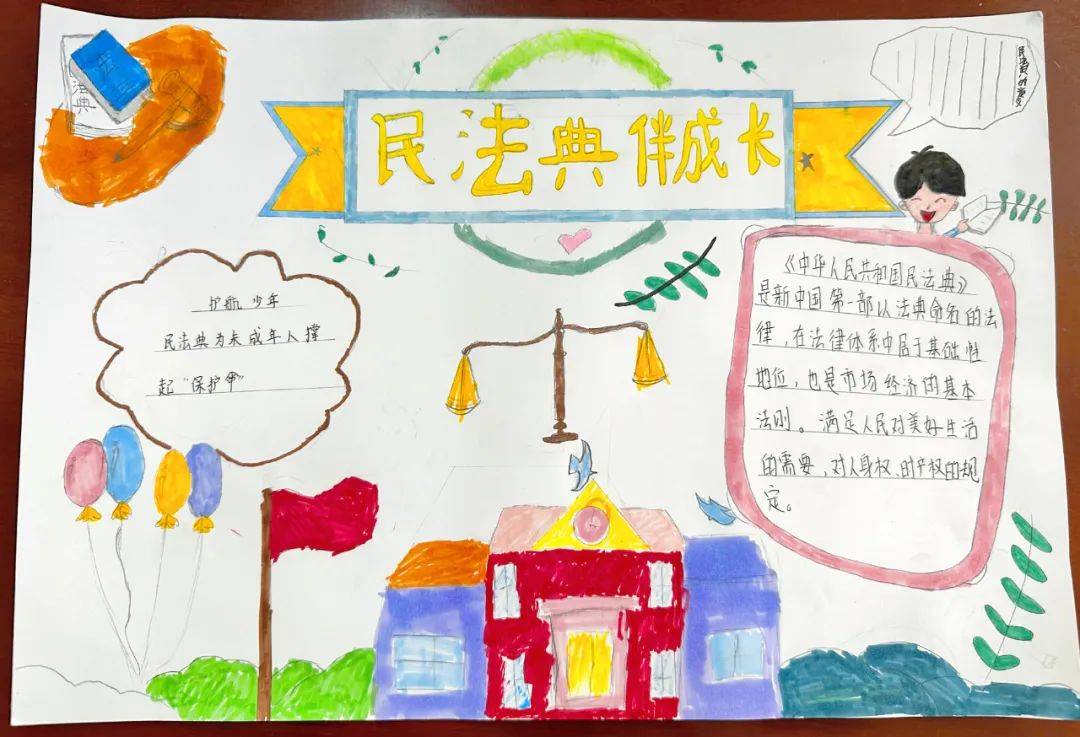 民法典伴成长
法典
法典
民法典的意义
护航少年
民法典为未成年人撑
起“保护伞”
《中华人民共和国民法典》
是新中国第一部以法典命名的法
律,在法律体系中居于基础性
地位,也是市场经济的基本
法则。满足人民对美好生活
的需要,对人身权、财产权的规
定。